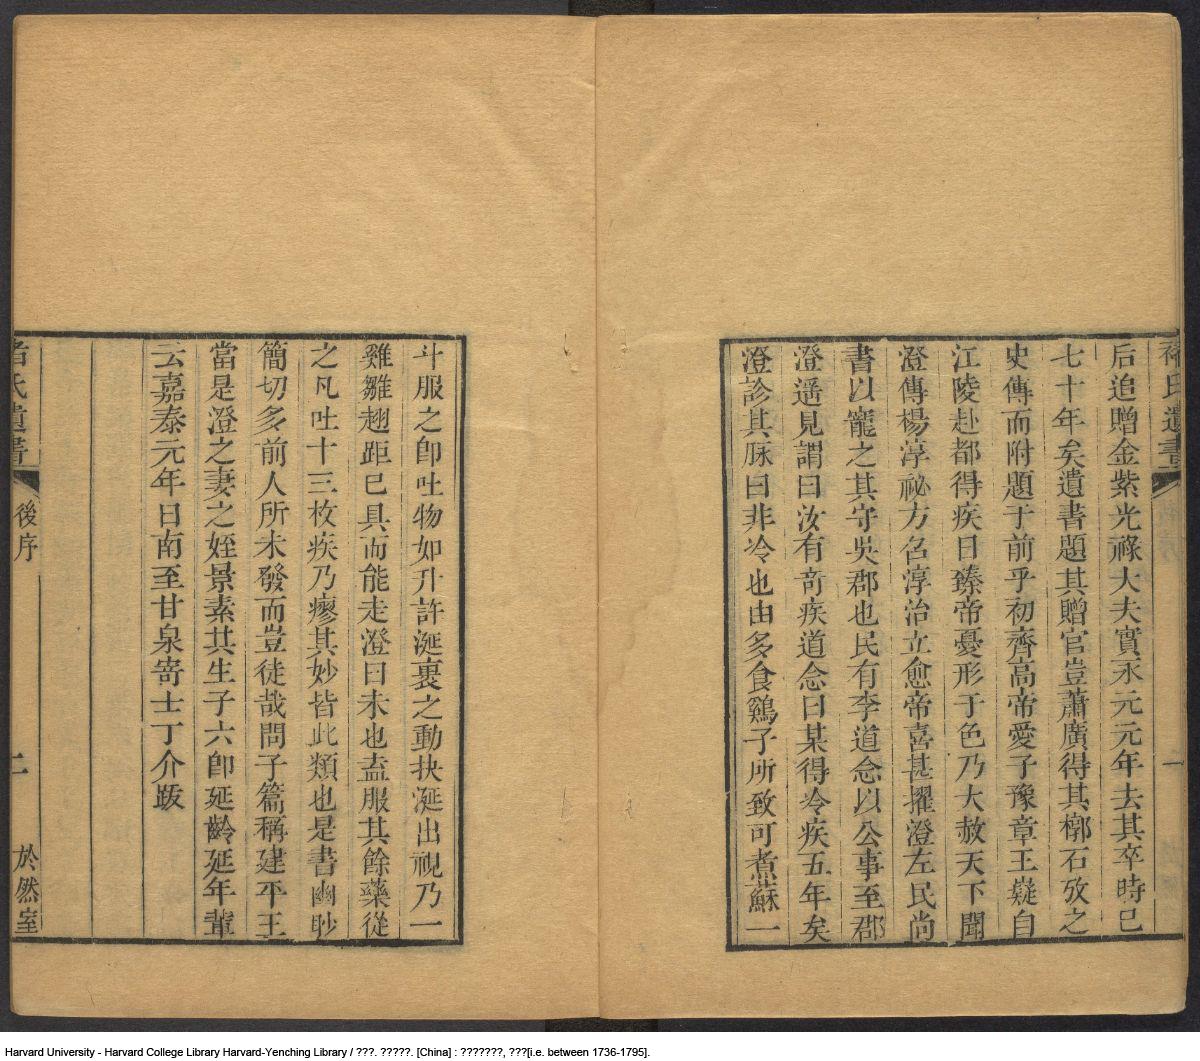 褚氏遺書
一
后追贈金紫光祿大夫實永元元年去其卒時已
七十年矣遺書題其贈官豈蕭廣得其槨石攷之
史傳而附題于前乎初齊高帝愛子豫章王嶷自
江陵赴都得疾日臻帝憂形于色乃大赦天下聞
澄傳楊淳祕方召淳治立愈帝喜甚擢澄左民尚
書以寵之其守吳郡也民有李道念以公事至郡
澄遥見謂曰汝有奇疾道念曰某得冷疾五年矣
澄診其脉曰非冷也由多食鷄子所致可煮蘇一
斗服之卽吐物如升許涎裹之動抉涎出視乃一
雞雛翅距已具而能走澄曰未也盍服其餘藥從
之凡吐十三枚疾乃瘳其妙皆此類也是書幽眇
簡切多前人所未發而豈徒哉問子篇稱建平王
當是澄之妻之姪景素共生子六卽延齡延年輩
云嘉泰元年日南至甘泉寄士丁介跋
褚氏遺書
後序
二
於然室
Harvard University - Harvard College Library Harvard-Yenching Library / ???. ?????. [China] : ???????, ???[i.e. between 1736-1795].